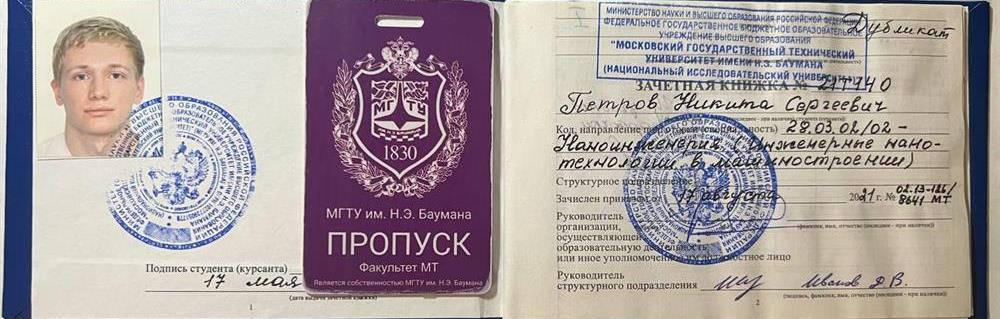 Подпись студента (курсанта)
17 мая
(дата выдачи зачетной книжки)
1
МГТУ
1830
МГТУ им. Н.Э. Баумана
ПРОПУСК
Факультет МТ
Является собственностью МГТУ им. Н.Э. Баумана
МИНИСТЕРСТВО НАУКИ И ВЫСШЕГО ОБРАЗОВАНИЯ РОССИЙСКОЙ ФЕДЕРАЦИИ
ФЕДЕРАЛЬНОЕ ГОСУДАРСТВЕННОЕ БЮДЖЕТНОЕ ОБРАЗОВАТЕЛЬНОЕ
УЧРЕЖДЕНИЕ ВЫСШЕГО ОБРАЗОВАНИЯ
"МОСКОВСКИЙ ГОСУДАРСТВЕННЫЙ ТЕХНИЧЕСКИЙ
УНИВЕРСИТЕТ ИМЕНИ Н.Э. БАУМАНА
(НАЦИОНАЛЬНЫЙ ИССЛЕДОВАТЕЛЬСКИЙ УНИВЕРСИТЕТ)
Дубликат
ЗАЧЕТНАЯ КНИЖКА №
Петров Никита Сергеевич
Код, направление 28.03.02/02 -
Наноинженерия (Инженерные нано-
технологии в машиностроении)
Структурное
Зачислен 17 августа 2021 г. № 02.13-126/
8641 МТ
Руководитель
организации,
осуществляющей
образовательную деятельность,
или иное уполномоченное им должностное лицо
Руководитель
структурного подразделения Иванов Д.В.
(подпись, фамилия, имя, отчество (последнее - при наличии))
2